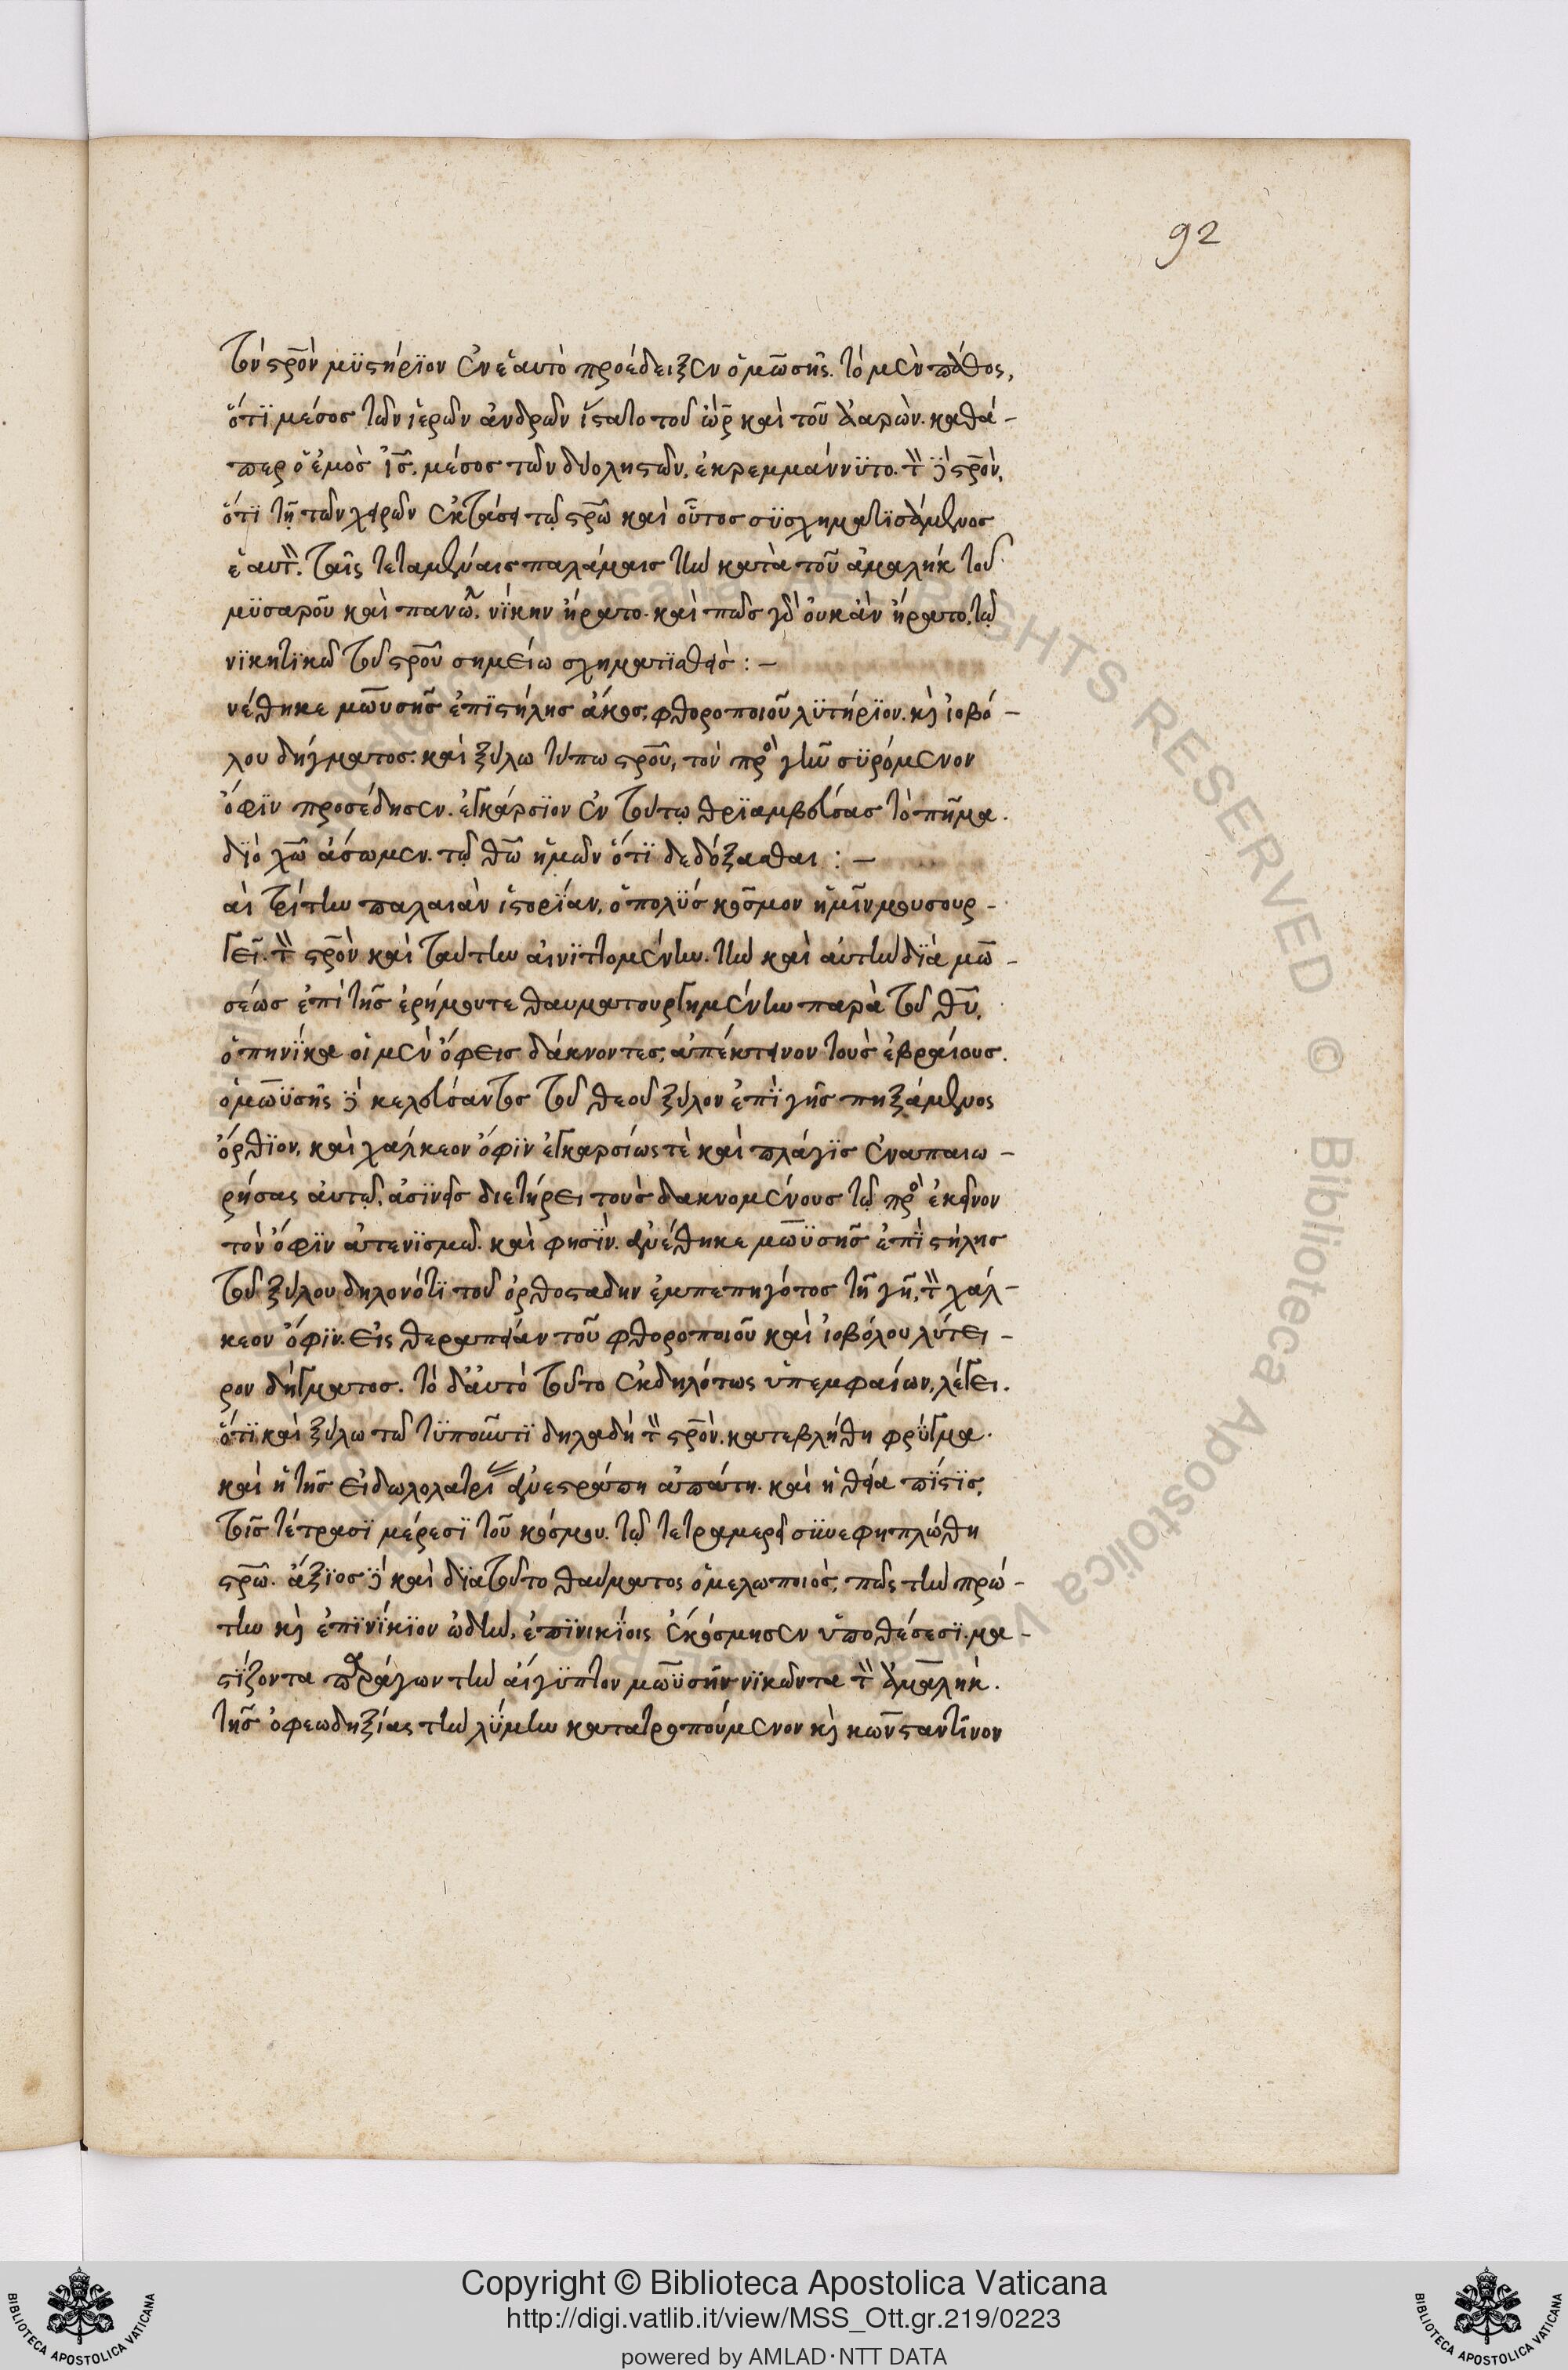 92
τὸν σρ̅ὸν μϋστήρϊον ἐν ἑαυτὸ προέδειξεν ὁ μω̅σῆς. τὸ μὲν πάθος,
ὅτϊ μέσος τῶν ἱερῶν ἀνδρῶν ἵστατο τοῦ ὢρ̅ καὶ τοῦ ἀαρὼν. καθά-
περ ὁ ἐμὸς ἰς̅. μέσος τῶν δύο ληστῶν, ἐκρεμμάννϋτο. τὸν δὲ σρ̅ὸν,
ὅτϊ τῇ τῶν χειρῶν ἐκτάσει τῷ σρ̅ῶ καὶ οὗτος σϋσχηματϊσάμενος
ἑαυτὸν. ταῖς τεταμέναις παλάμαις τὴν κατὰ τοῦ ἀμαλὴκ τοῦ
μϋσαροῦ καὶ πανώλους νίκην ἤρατο. καὶ πῶς γὰρ οὐκ ἂν ἤρατο, τῷ
νϊκητϊκῶ τοῦ σρ̅οῦ σημείω σχηματϊσθεὶς : –
νέθηκε μωϋσῆς ἐπϊ στήλης ἄκος, φθοροποιοῦ λϋτήρϊον. κὶ ἰοβό-
λου δήγματος. καὶ ξύλω τύπω σρ̅οῦ, τὸν πρὸς γῆν σϋρόμενον
ὄφϊν προσέδησεν. ἐγκάρσϊον ἐν τούτῳ θρϊαμβεύσας τὸ πῆμα.
δϊὸ χω̅ ἄσωμεν. τῷ θω̅ ἡμῶν ὅτϊ δεδόξασθαι : –
αὶ τρίτην παλαιὰν ἱστορίαν, ὁ πολὺς κόσμον ἡμῖν μουσουρ-
γεῖ. τὸν σρ̅ὸν καὶ ταύτην αἰνϊττομένην. τὴν καὶ αὐτὴν δϊὰ μω̅-
σέως ἐπὶ τῆς ἐρήμουτε θαυματουργημένην παρὰ τοῦ θυ̅,
ὁπηνίκα οἱ μὲν ὄφεις δάκνοντες, ἀπέκτεινον τοὺς ἑβραίους.
ὁ μωϋσῆς δὲ κελεύσαντος τοῦ θεοῦ ξύλον ἐπὶ γῆς πηξάμενος
ὄρθϊον, καὶ χάλκεον ὄφϊν ἐγκαρσίως τὲ καὶ πλάγϊς ἐναπαιω-
ρήσας αὐτῷ, ἀσϊνεῖς διετήρει τοὺς δακνομένους τῷ πρὸς ἐκεῖνον
τὸν ὄφϊν ἀτενϊσμῶ. καὶ φησϊν. ἀνέθηκε μωϋσῆς ἐπὶ στήλης
τοῦ ξύλου δηλονότϊ τοῦ ὀρθοσταδην ἐμπεπηγότος τῇ γῇ, τὸν χάλ-
κεον ὄφϊν. εἰς θεραπείαν τοῦ φθοροποιοῦ καὶ ἰοβόλου λύτει-
ρον δήγματος. τὸ δ'αὐτὸ τοῦτο ἐκδηλότως ὑπεμφαίων, λέγει.
ὅτϊ καὶ ξύλω τῶ τϋποῦντϊ δηλαδὴ τὸν σρ̅ὸν. κατεβλήθη φρύγμα.
καὶ ἡ τῆς εἰδωλολατρίας ἀνεστράπη ἀπάτη. καὶ ἡ θεία πίστϊς,
τοῖς τέτρασϊ μέρεσϊ τοῦ κόσμου. τῷ τετραμερεῖ σϋνεφηπλώθη
σρ̅ῶ. ἄξϊος δὲ καὶ δϊὰ τοῦτο θαύματος ὁ μελωποιὸς, πῶς τὴν πρώ-
την κὶ ἐπϊνίκϊον ὠδὴν, ἐπϊνικίοις ἐκόσμησεν ὑποθέσεσϊ. μα-
στίζοντα παράγων τὴν αἴγϋπτον μωϋσῆν νϊκῶντα τὸν ἀμαλὴκ.
τῆς ὀφεωδηξίας τὴν λύμην κατατροπούμενον κὶ κων̅σταντῖνον